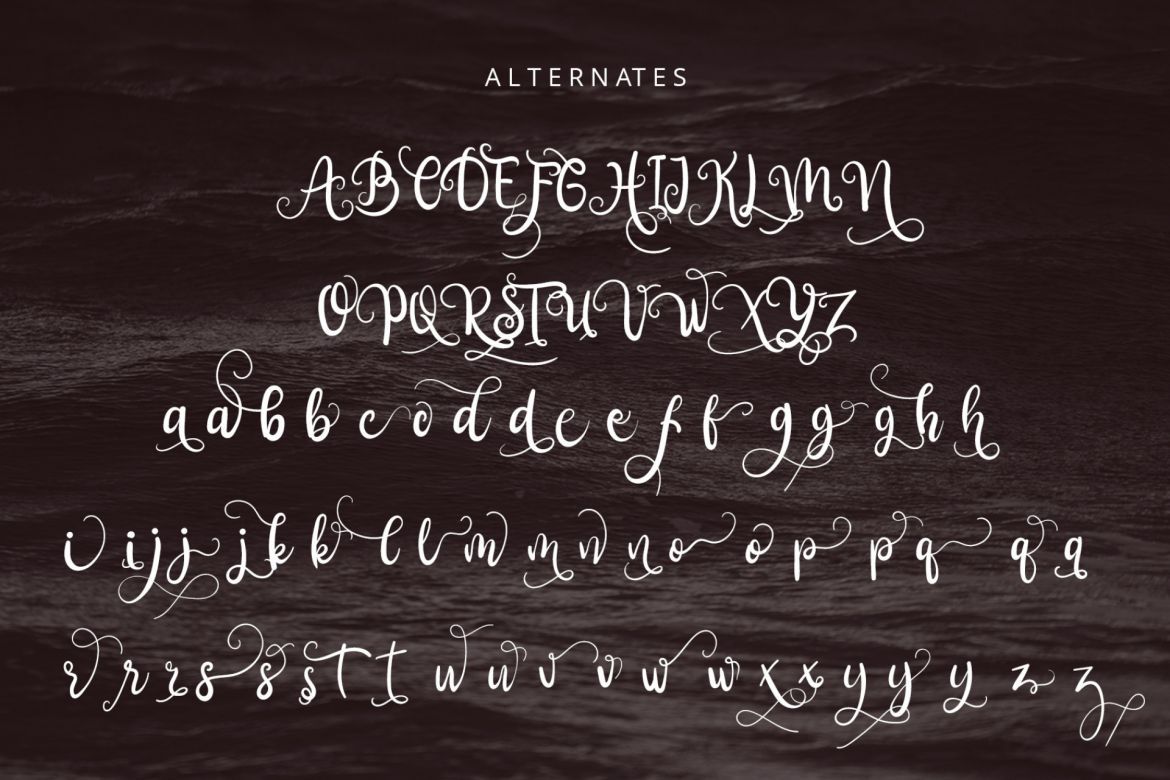 ALTERNATES
A B C D E F G H I J K L M N
O P Q R S T U V W X Y Z
a a b b c c d d e e f f g g g h h
i i j j j k k l l m m n n o o p p q q q
r r r s s s t t u u v v w w x x y y y z z